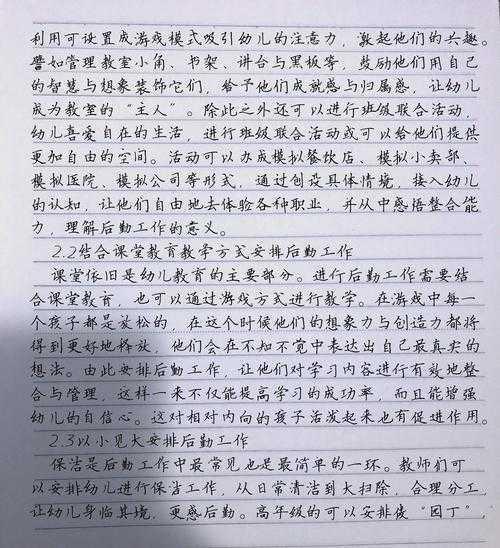 利用可设置成游戏模式吸引幼儿的注意力，激起他们的兴趣。
譬如管理教室小角、书架、讲台与黑板等，鼓励他们用自己
的智慧与想象装饰它们，给予他们成就感与归属感，让幼儿
成为教室的“主人”。除此之外还可以进行班级联合活动，
幼儿喜爱自在的生活，进行班级联合活动或可以给他们提供
更加自由的空间。活动可以办成模拟餐饮店、模拟小卖部、
模拟医院、模拟公司等形式，通过创设具体情境，接入幼儿
的认知，让他们自由地去体验各种职业，并从中感悟整合能
力，理解后勤工作的意义。
2.2结合课堂教育教学方式安排后勤工作
课堂依旧是幼儿教育的主要部分。进行后勤工作需要结
合课堂教育，也可以通过游戏方式进行教学。在游戏中每一
个孩子都是放松的，在这个时候他们的想象力与创造力都将
得到更好地释放，他们会在不知不觉中表达出自己最真实的
想法。由此安排后勤工作，让他们对学习内容进行有效地整
合与管理，这样一来不仅能提高学习的成功率，而且能增强
幼儿的自信心。这对相对内向的孩子活泼起来也有促进作用。
2.3以小见大安排后勤工作
保洁是后勤工作中最常见也是最简单的一环。教师们可
以安排幼儿进行保洁工作，从日常清洁到大扫除，合理分工，
让幼儿身临其境，更感后勤。高年级的可以安排做“园丁”，